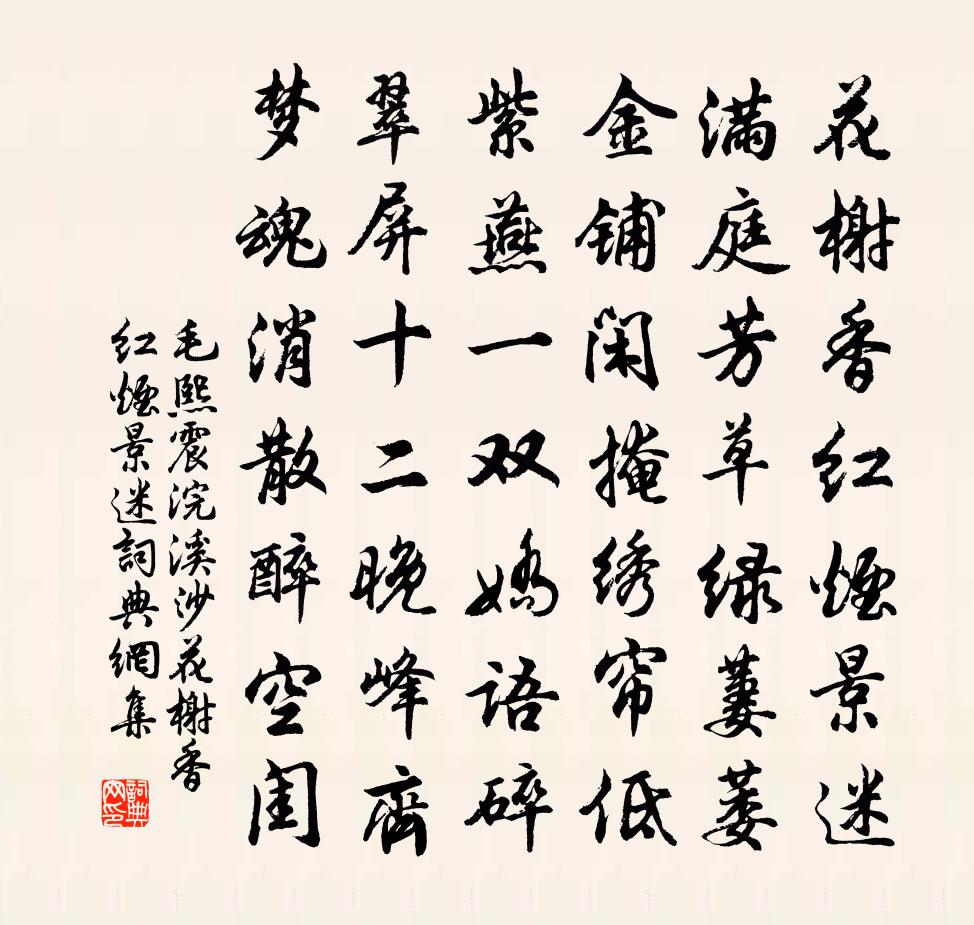 花榭香红煙景迷
满庭芳草绿萋萋
金铺闲掩绣帘低
紫燕一双娇语碎
翠屏十二晚峰齊
梦魂消散醉空闺
毛熙震浣溪沙花榭香
红煙景迷詞典網集
詞典
网印